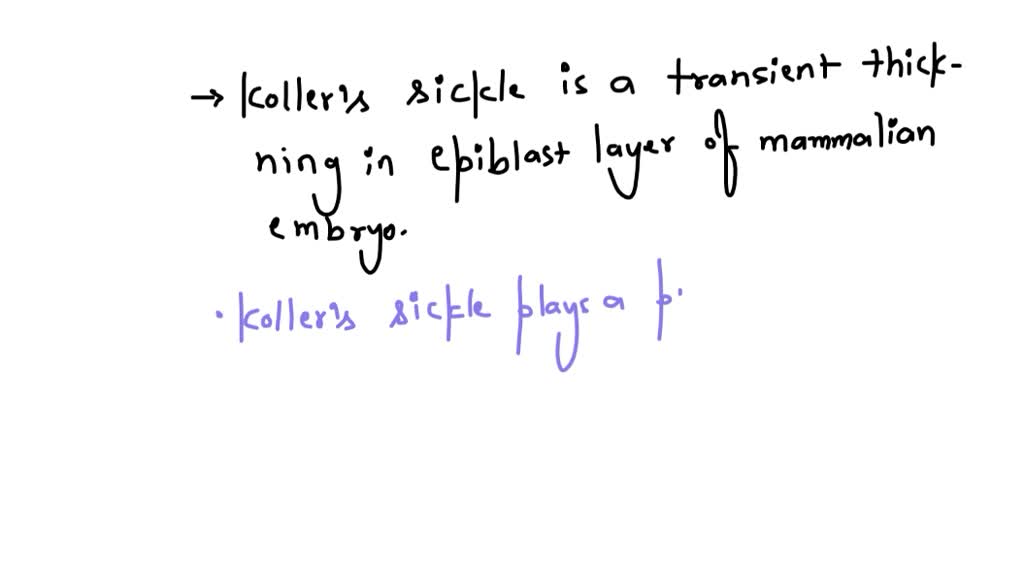 → Koller's sickle is a transient thick-
ning in epiblast layer of mammalian
embryo.
• Koller's sickle plays a p